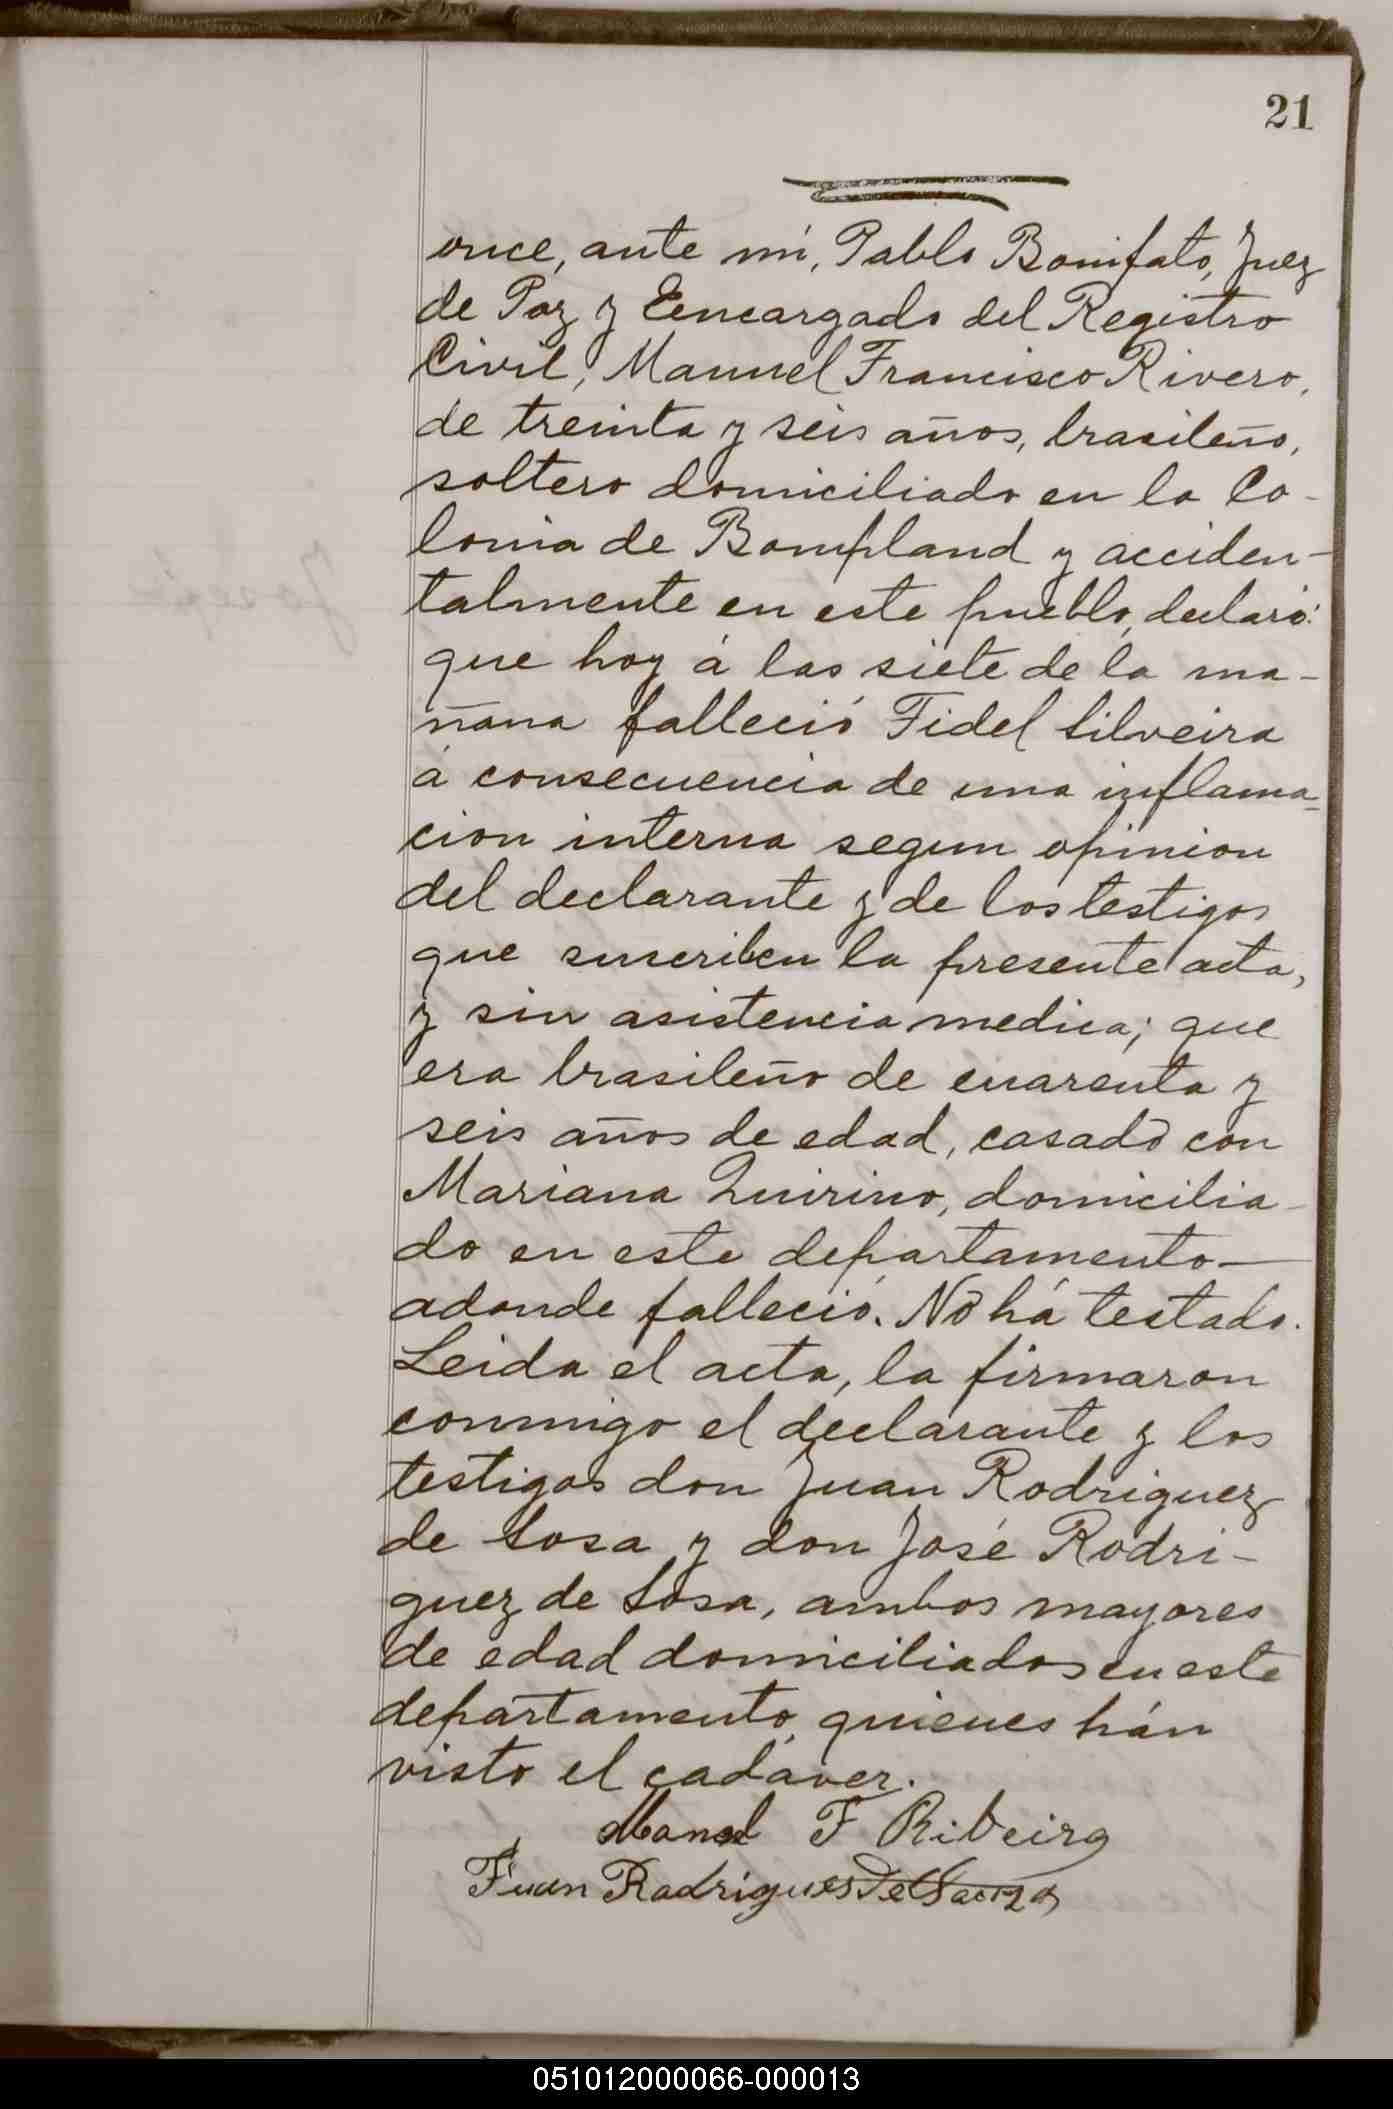 21
once, ante mi, Pablo Bonifato, Juez
de Paz y Eencargado del Registro
Civil, Manuel Francisco Rivero,
de treinta y seis años, brasileño,
soltero domiciliado en la Co-
lonia de Bompland y acciden-
talmente en este pueblo, declaró:
que hoy á las siete de la ma-
ñana falleció Fidel Silveira
á consecuencia de una inflama-
cion interna segun opinion
del declarante y de los testigos
que suscriben la presente acta,
y sin asistencia medica; que
era brasileño de cuarenta y
seis años de edad, casado con
Mariana Quirino, domicilia-
do en este departamento—
adonde falleció. No há testado.
Leida el acta, la firmaron
conmigo el declarante y los
testigos don Juan Rodriguez
de Sosa y don José Rodri-
guez de Sosa, ambos mayores
de edad domiciliados en este
departamento, quienes hán
visto el cadáver.
Manoel F Ribeiro
Juan Rodrigues de Souza
051012000066-000013